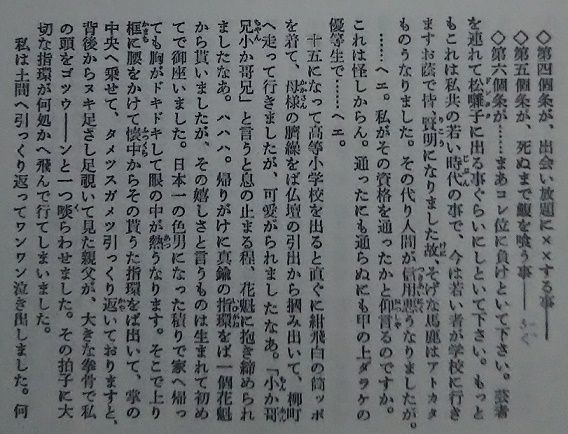 ◇第四個条が、出会い放題に××する事――
◇第五個条が、死ぬまで鰒を喰う事――
◇第六個条が……まあコレ位に負けといて下さい。芸者
を連れて松囃子に出る事ぐらいにしといて下さい。もっと
もこれは私共の若い時代の事で、今は若い者が学校に行き
ますお蔭で侍、賢明になりました故、そげな馬鹿はアトカタ
ものうなりました。その代り人間が信用悪うなりましたが。
……ヘエ。私がその資格を通ったかと仰言るのですか。
これは怪しからん。通ったにも通らぬにも甲の上ダラケの
優等生で……ヘエ。
十五になって高等小学校を出ると直ぐに紺飛白の筒ッポ
を着て、母様の臍繰をば仏壇の引出から掴み出いて、柳町
へ走って行きましたが、可愛がられましたなあ。「小か哥
兄小か哥兄」と言うと息の止まる程、花魁に抱き締められ
ましたなあ。ハハハ。帰りがけに真鍮の指環をば一個花魁
から貰いましたが、その嬉しさと言うものは生まれて初め
てで御座いました。日本一の色男になった積りで家へ帰っ
ても胸がドキドキして眼の中が熱うなります。そこで上り
框に腰をかけて懐中からその貰うた指環をば出いて、掌の
中央へ乗せて、タメツスガメツ引っくり返いておりますと、
背後からヌキ足さし足覗いて見た親父が、大きな拳骨で私
の頭をゴツウ――ンと一つ啖らわせました。その拍子に大
切な指環が何処かへ飛んで行てしまいました。
私は土間へ引っくり返ってワンワン泣き出しました。何